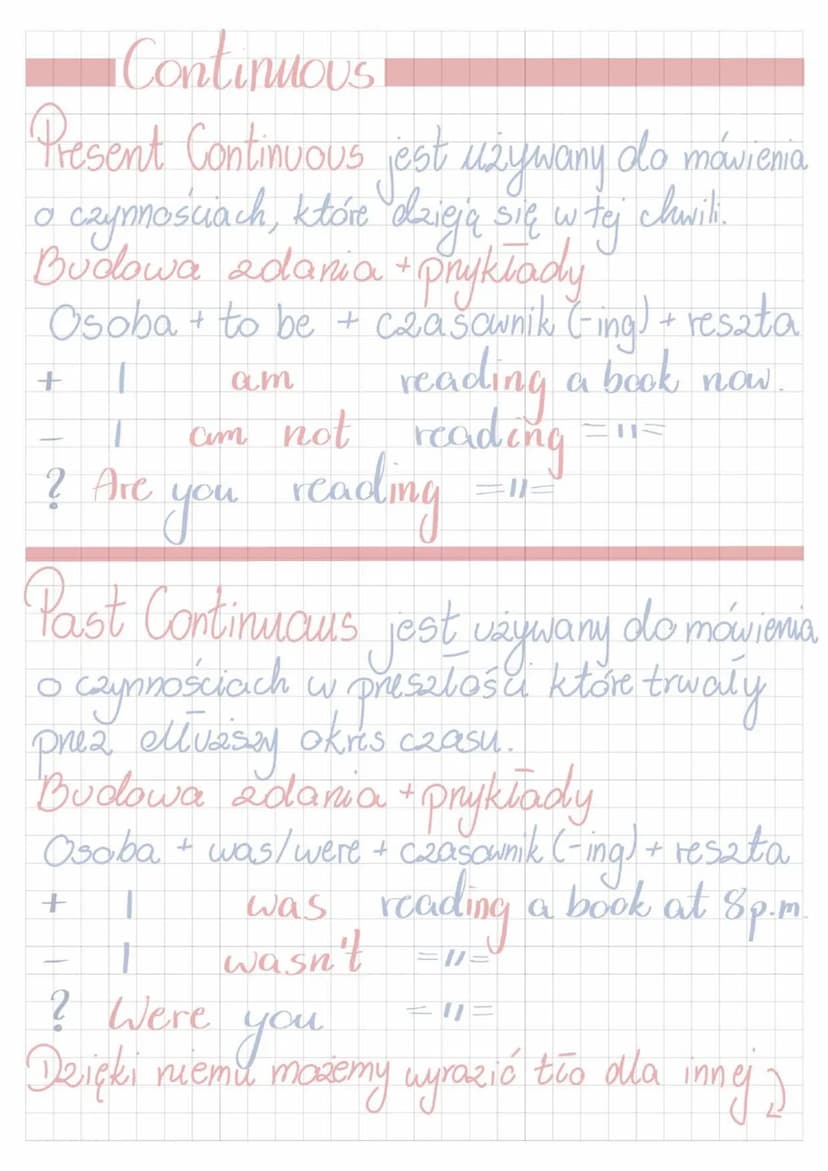 Continuous
Present Continuous jest używany do mówienia
o czynnościach, które dzieją się w tej chwili.
Budowa zdania + przykłady
Osoba + to be + czasownik (-ing) + reszta
+ I am reading a book now.
- I am not reading =11=
? Are you reading =11=
Past Continuous jest używany do mówienia
o czynnościach w przeszłości które trwały
przez dłuższy okres czasu.
Budowa zdania + przykłady
Osoba + was/were + czasownik (-ing) + reszta
+ I was reading a book at 8 p.m.
- I wasn't =11=
? Were you =11=
Dzięki niemu możemy wyrazić tło dla innej